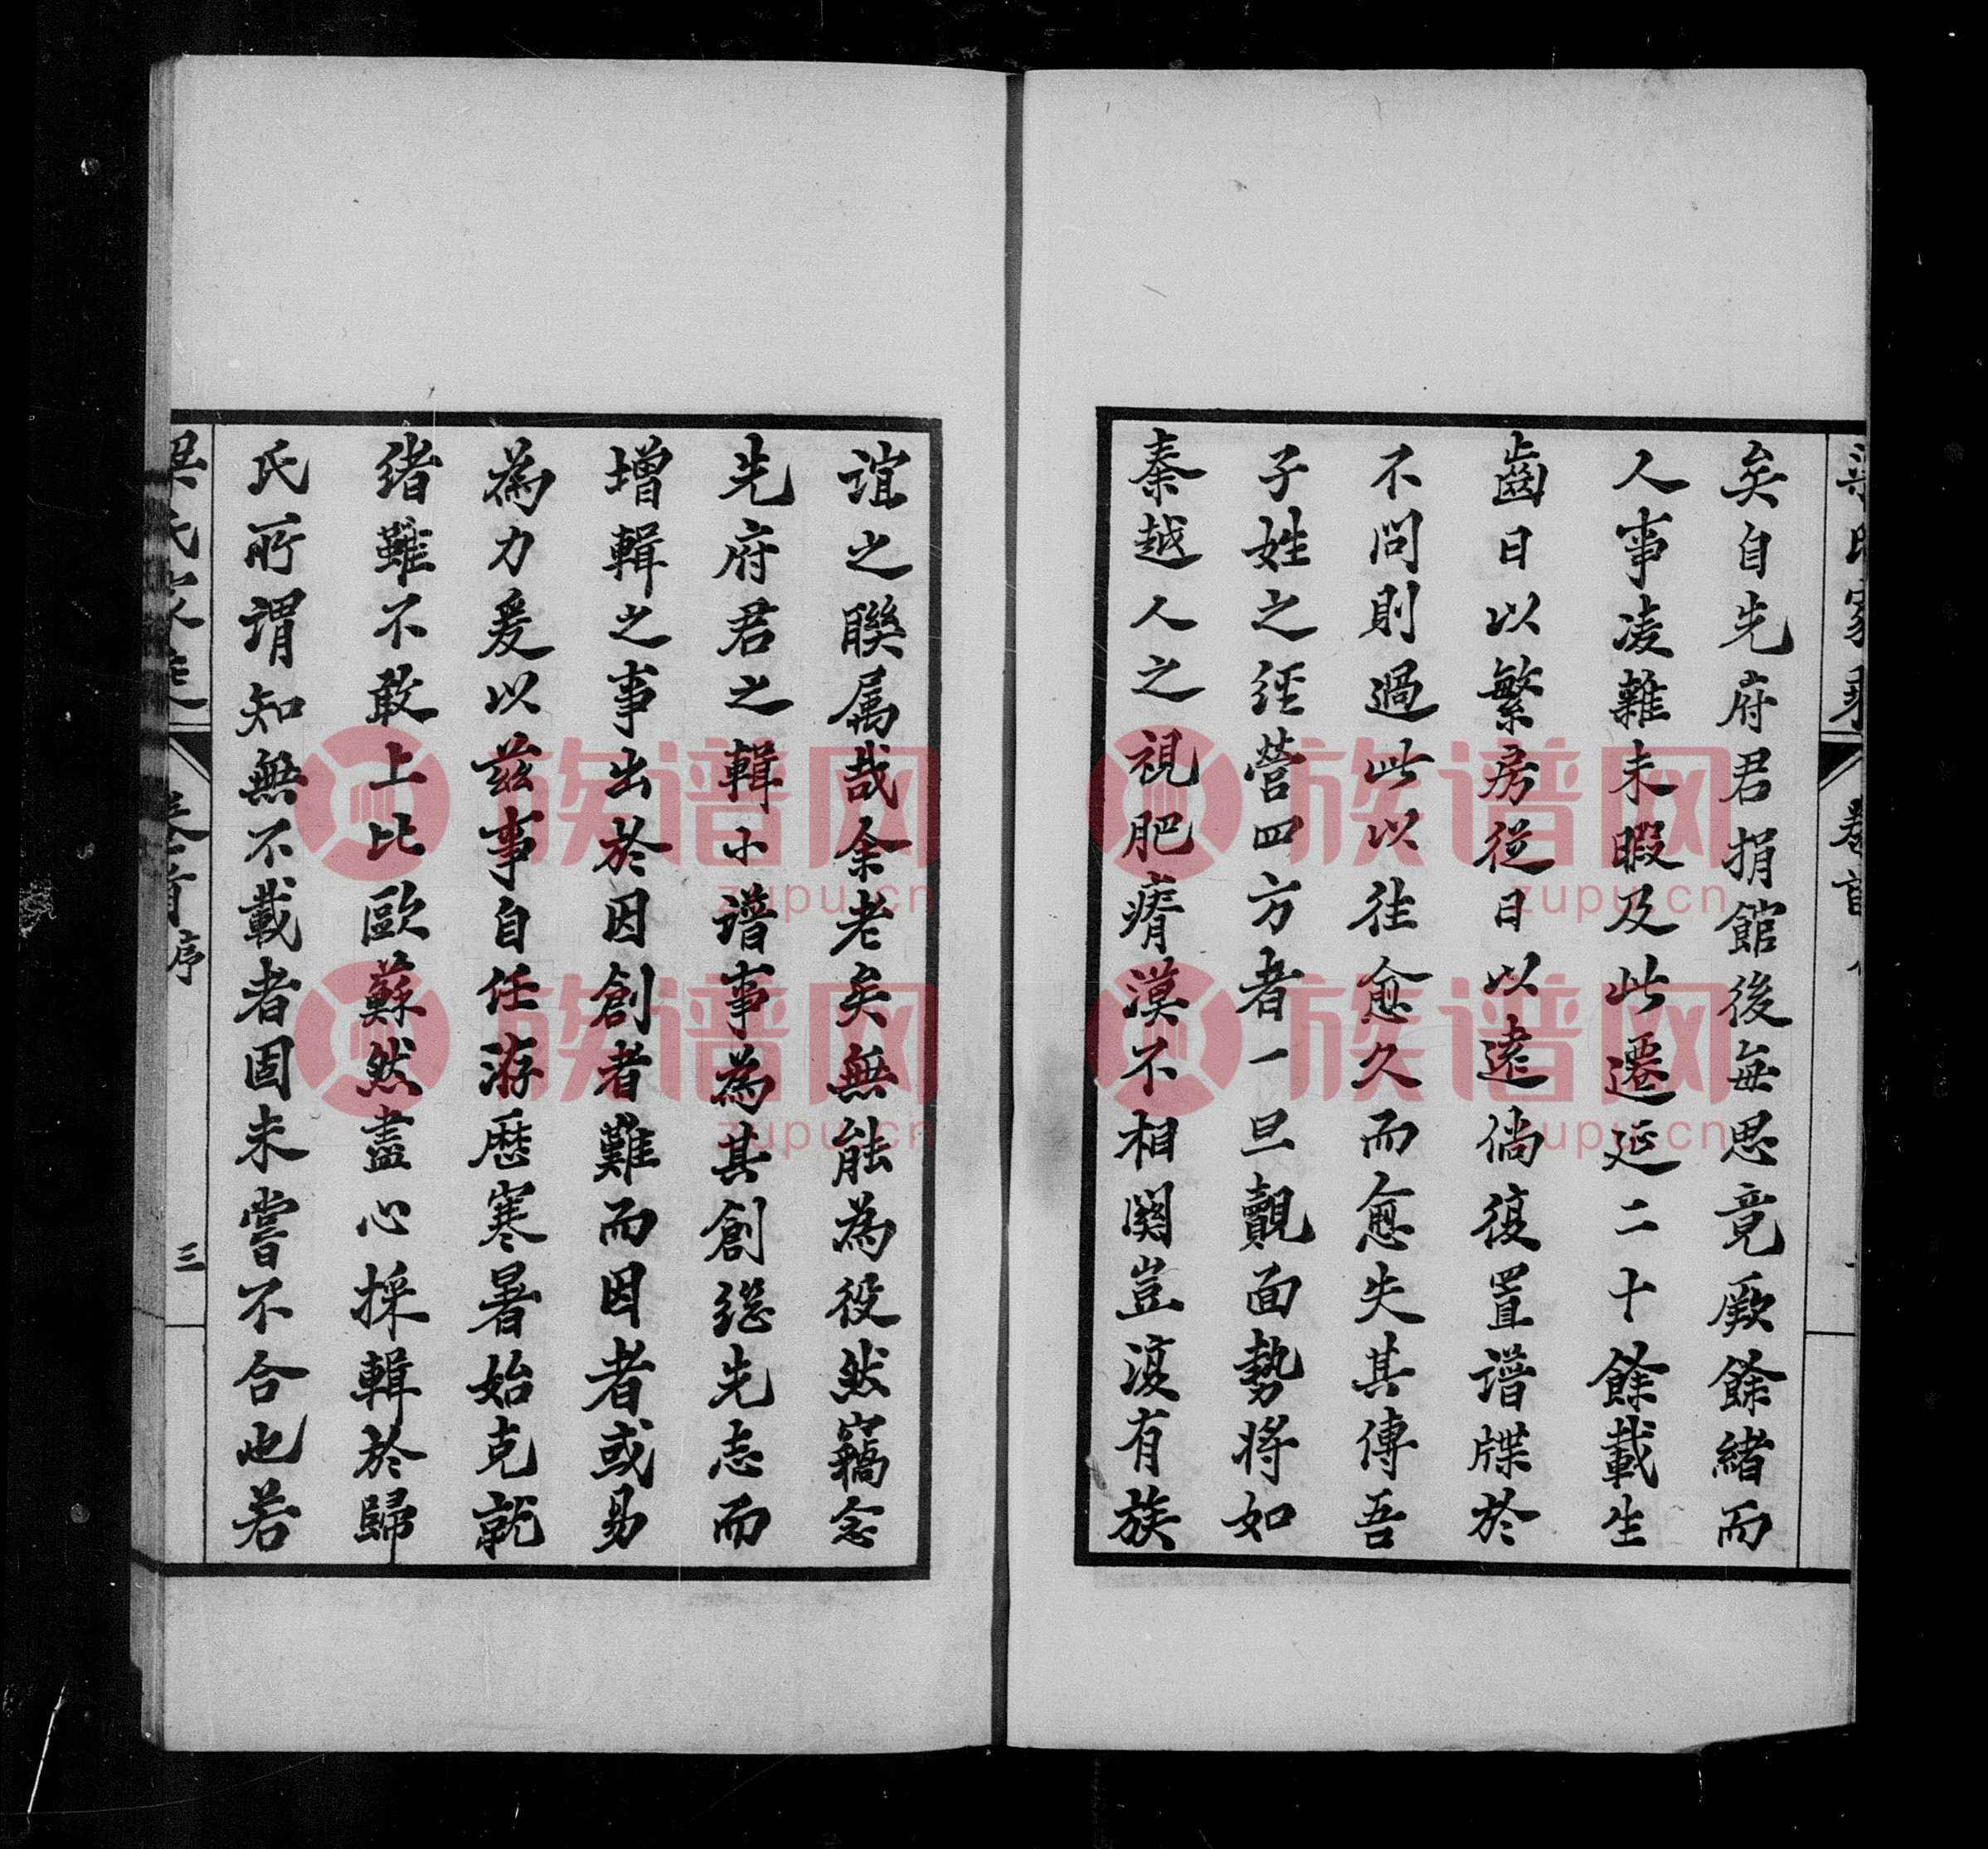 矣自先府君捐館後每思竟厥餘緒而
人事凌雜未暇及此遷延二十餘載生
齒日以繁房從日以遠倘復置譜牒於
不問則過此以往愈久而愈失其傳吾
子姓之經營四方者一旦覿面勢將如
秦越人之視肥瘠漠不相関豈復有族
誼之聯属哉余老矣無能為役然竊念
先府君之輯小譜事為其創繼先志而
增輯之事出於因創者難而因者或易
為力爰以茲事自任洊歴寒暑始克就
緒雖不敢上比歐蘇然盡心採輯於歸
氏所謂知無不載者固未嘗不合也若
卷首 序
三
族谱网
zupu.cn
族谱网
zupu.cn
族谱网
zupu.cn
族谱网
zupu.cn